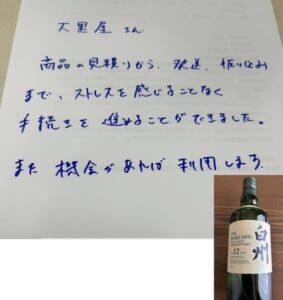 大黒屋 さん
商品の見積りから、発送、振り込み
まで、ストレスを感じることなく
手続きを進めることができました。
また 機会があれば 利用します。
白州
12